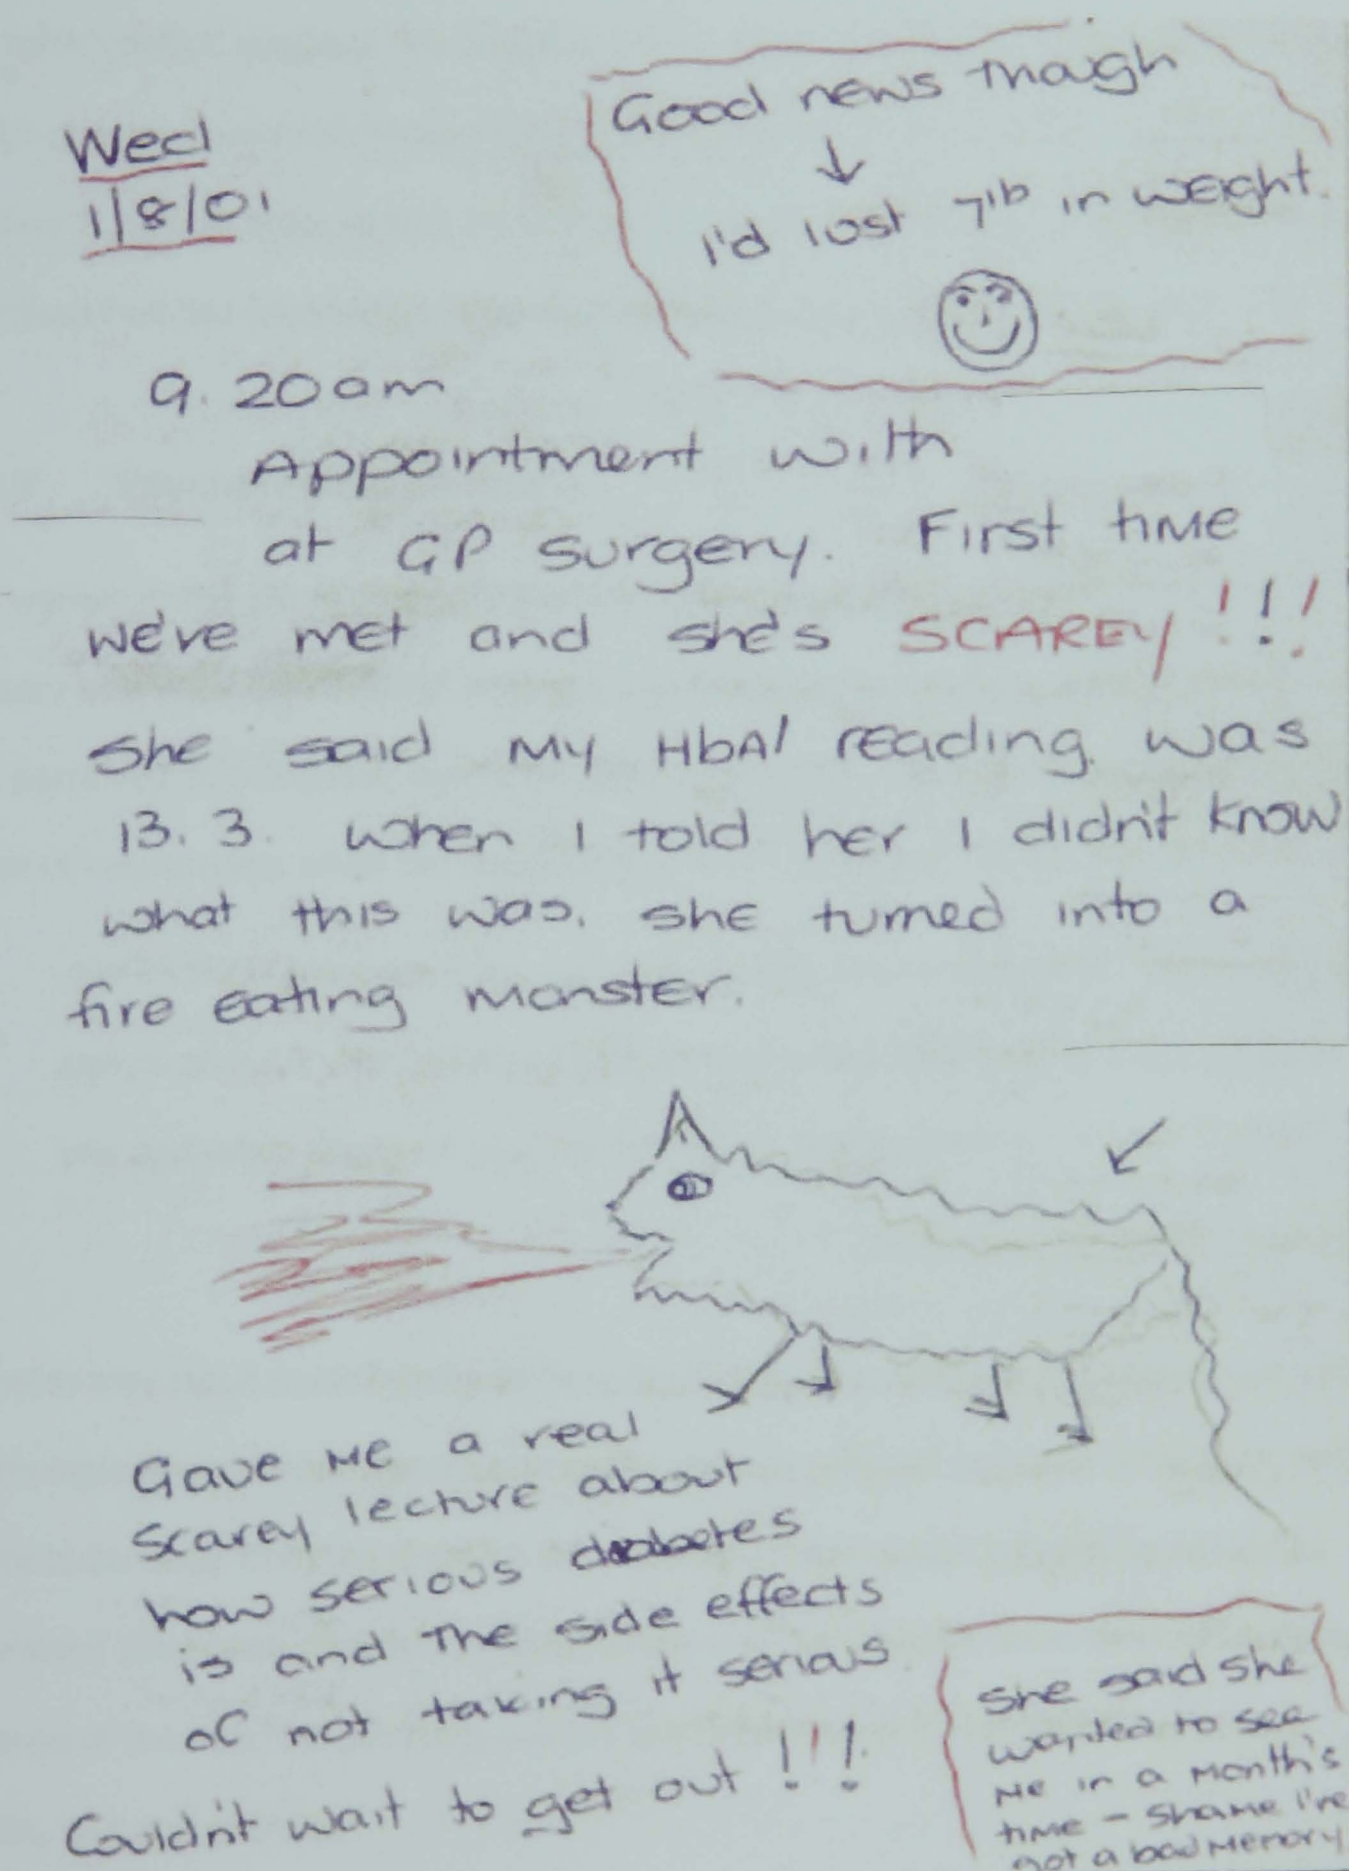 Wed
1/8/01
Good news though
↓
I'd lost 7lb in weight.
9.20am
Appointment with
at GP surgery. First time
we've met and she's SCAREY!!!
She said my HbA1 reading was
13.3. when I told her I didn't know
what this was. she turned into a
fire eating monster.
Gave me a real
scarey lecture about
how serious diabetes
is and the side effects
of not taking it serious
Couldn't wait to get out !!!
She said she
wanted to see
me in a month's
time - shame I've
got a bad memory